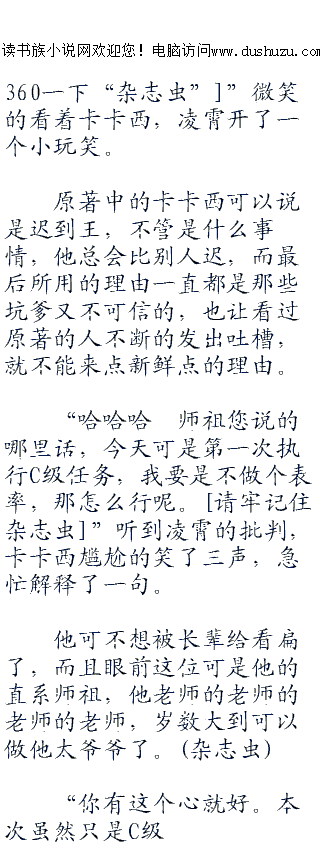 读书族小说网欢迎您！电脑访问www.dushuzu.com
360一下“杂志虫”]”微笑
的看着卡卡西，凌霄开了一
个小玩笑。
原著中的卡卡西可以说
是迟到王，不管是什么事
情，他总会比别人迟，而最
后所用的理由一直都是那些
坑爹又不可信的，也让看过
原著的人不断的发出吐槽，
就不能来点新鲜点的理由。
“哈哈哈　师祖您说的
哪里话，今天可是第一次执
行C级任务，我要是不做个表
率，那怎么行呢。[请牢记住
杂志虫]”听到凌霄的批判，
卡卡西尴尬的笑了三声，急
忙解释了一句。
他可不想被长辈给看扁
了，而且眼前这位可是他的
直系师祖，他老师的老师的
老师的老师，岁数大到可以
做他太爷爷了。(杂志虫)
“你有这个心就好。本
次虽然只是C级